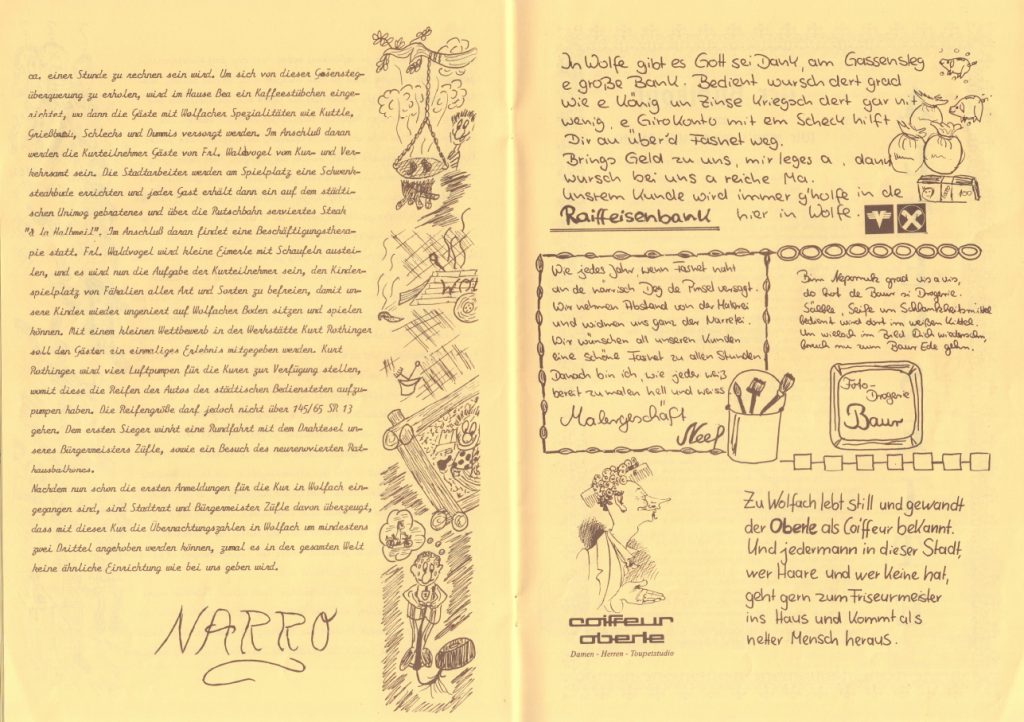 ca. einer Stunde zu rechnen sein wird. Um sich von dieser Gassensteg-
überquerung zu erholen, wird im Hause Bea ein Kaffeestübchen einge-
richtet, wo dann die Gäste mit Wolfacher Spezialitäten wie Kuttle,
Schlechs und Dummis versorgt werden. Im Anschluß daran
werden die Kurteilnehmer Gäste von Frl. Waldvogel vom Kur- und Ver-
kehrsamt sein. Die Stadtarbeiter werden am Spielplatz eine Schwenk-
steakbude errichten und jeder Gast erhält dann ein auf dem städti-
schen Unimog gebratenes und über die Rutschbahn serviertes Steak
"à la Halbmeil". Im Anschluß daran findet eine Beschäftigungsthera-
pie statt. Frl. Waldvogel wird kleine Eimerle mit Schaufeln austei-
len, und es wird nun die Aufgabe der Kurteilnehmer sein, den Kinder-
spielplatz von Fäkalien aller Art und Sorten zu befreien, damit un-
sere Kinder wieder ungeniert auf Wolfacher Boden sitzen und spielen
können. Mit einem kleinen Wettbewerb in der Werkstätte Kurt Rothinger
soll den Gästen ein einmaliges Erlebnis mitgegeben werden. Kurt
Rothinger wird vier Luftpumpen für die Kurer zur Verfügung stellen,
womit diese die Reifen der Autos der städtischen Bediensteten aufzu-
pumpen haben. Die Reifengröße darf jedoch nicht über 145/65 SR 13
gehen. Dem ersten Sieger winkt eine Rundfahrt mit dem Drahtesel un-
seres Bürgermeisters Züfle, sowie ein Besuch des neurenovierten Rat-
hausbalkones.
Nachdem nun schon die ersten Anmeldungen für die Kur in Wolfach ein-
gegangen sind, sind Stadtrat und Bürgermeister Züfle davon überzeugt,
dass mit dieser Kur die Übernachtungszahlen in Wolfach um mindestens
zwei Drittel angehoben werden können, zumal es in der gesamten Welt
keine ähnliche Einrichtung wie bei uns geben wird.
NARRO
In Wolfe gibt es Gott sei Dank, am Gassensteg
e große Bank. Bedient wursch dert grad
wie e König un Zinse kriegsch dert gar nit
wenig, e Girokonto mit em Scheck hilft
Dir au über'd Fasnet weg.
Brings Geld zu uns, mir leges a, dann
wursch bei uns a reiche Ma.
Unserem Kunde wird immer g'holfe in de
Raiffeisenbank hier in Wolfe.
100
Wie jedes Jahr, wenn Fasnet naht
an de närrisch Däg de Pinsel versagt.
Wir nehmen Abstand von der Malerei
und widmen uns ganz der Narretei.
Wir wünschen all unseren Kunden
eine schöne Fasnet zu allen Stunden
Danach bin ich, wie jeder weiß
bereit zu malen hell und weiss
Malergeschäft
Neef
Bim Nepomuk grad vis a vis,
do hört de Baur si Drogerie.
Sälble, Seife un Schlankheitsmittel
bedient wird dort im weißen Kittel.
Un willsch im Bild Dich wiedersehn,
bruch nu zum Baur Ede gehn.
Foto-
Drogerie
Baur
coiffeur
oberle
Damen - Herren - Toupetstudio
Zu Wolfach lebt still und gewandt
der Oberle als Coiffeur bekannt.
Und jedermann in dieser Stadt,
wer Haare und wer keine hat,
geht gern zum Friseurmeister
ins Haus und kommt als
netter Mensch heraus.